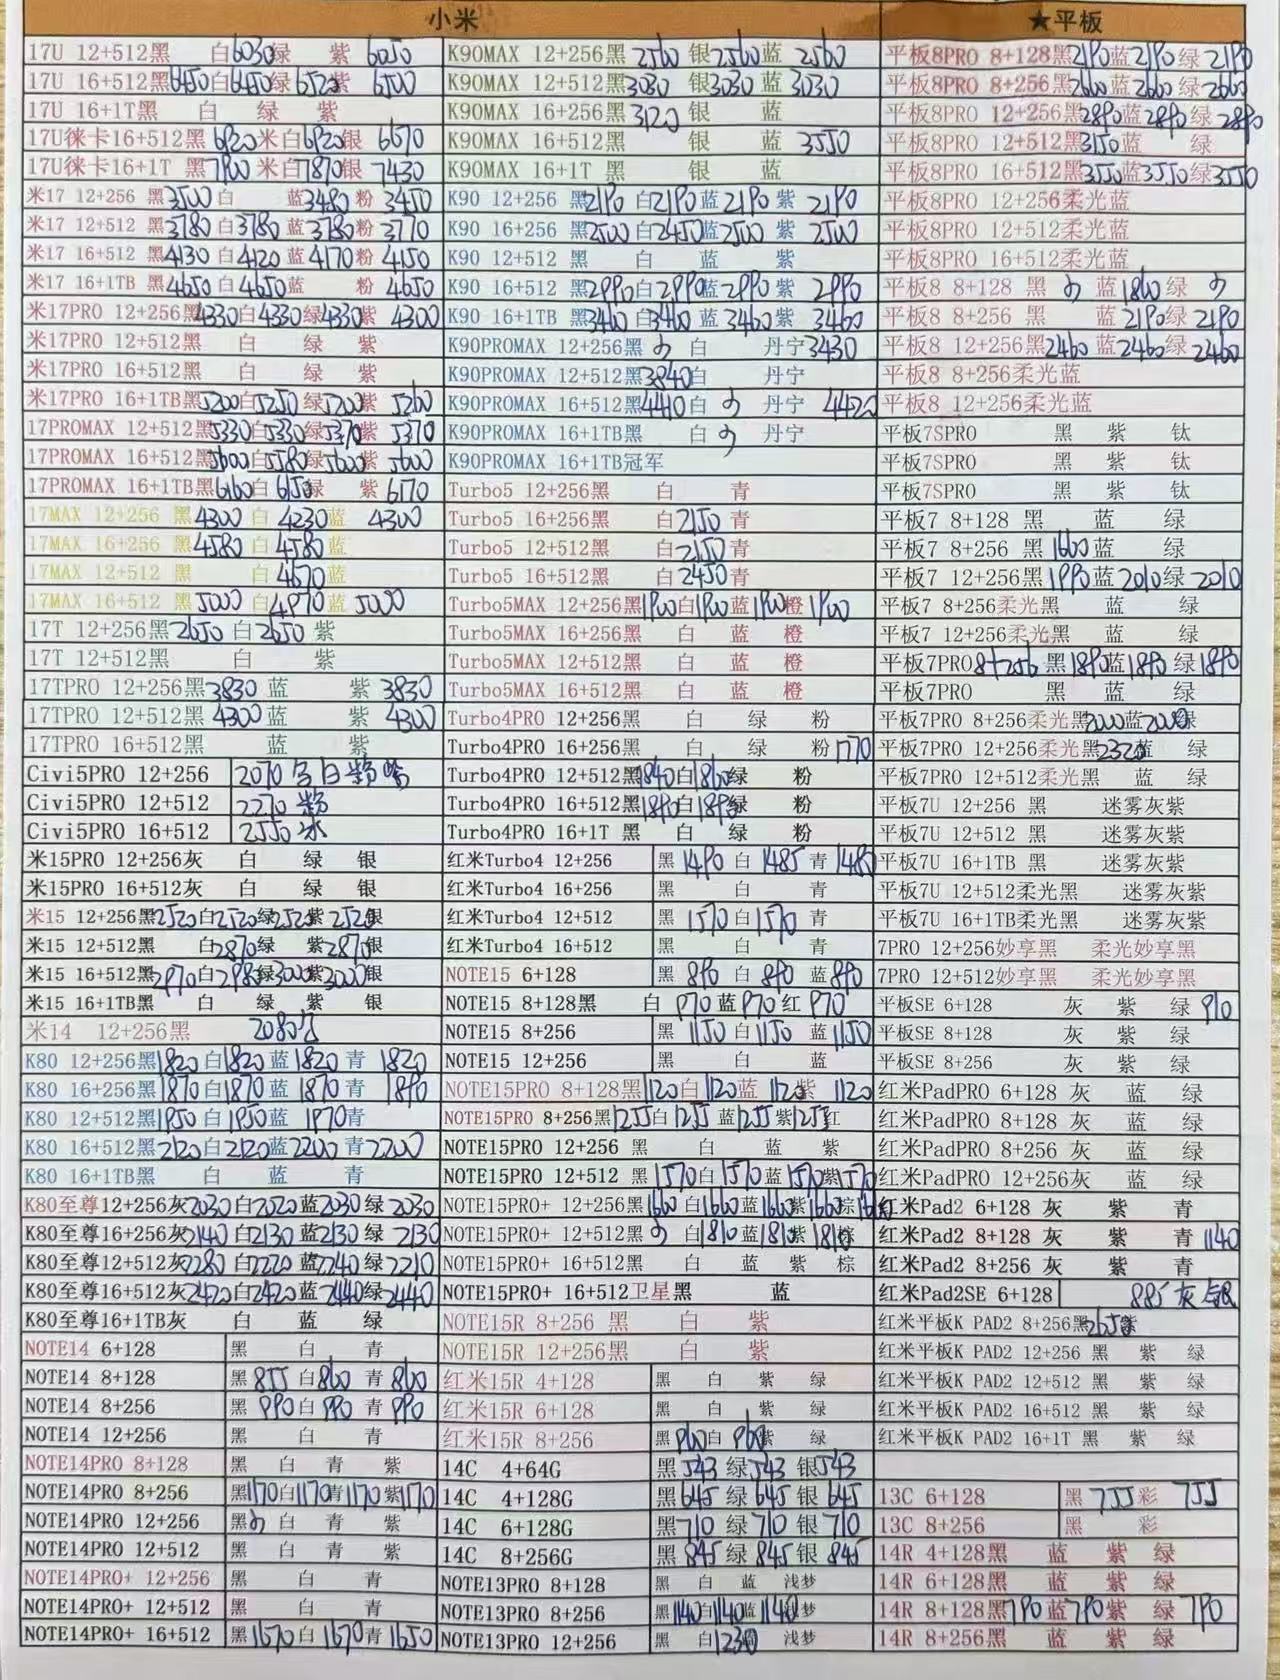 小米
17U 12+512黑 白6030绿 紫6050
17U 16+512黑6450白6450绿6520紫 6500
17U 16+1T黑 白 绿 紫
17U徕卡16+512黑 6920米白6920银 6670
17U徕卡16+1T 黑7900 米白7870银 7430
米17 12+256 黑3500白 蓝3480粉 3450
米17 12+512 黑3780白3780蓝3780粉3770
米17 16+512 黑4130白4120蓝4170粉4150
米17 16+1TB黑4650白4650蓝 粉4650
米17PRO 12+256黑4330白4330绿4330紫 4300
米17PRO 12+512黑 白 绿 紫
米17PRO 16+512黑 白 绿 紫
米17PRO 16+1TB黑5200白5250绿5200紫 5260
17PROMAX 12+512黑5330白5330绿5370紫 5370
17PROMAX 16+512黑5600白5580绿5600紫 5600
17PROMAX 16+1TB黑6160白6150绿 紫6170
17MAX 12+256 黑4300白4230蓝 4300
17MAX 16+256 黑4580白4580蓝
17MAX 12+512 黑 白4670蓝
17MAX 16+512 黑5000白4970蓝5000
17T 12+256黑2650白2650紫
17T 12+512黑 白 紫
17TPRO 12+256黑3830蓝 紫3830
17TPRO 12+512黑4300蓝 紫4300
17TPRO 16+512黑 蓝 紫
Civi5PRO 12+256 2070 白粉
Civi5PRO 12+512 2270 粉
Civi5PRO 16+512 2550 冰
米15PRO 12+256灰 白 绿 银
米15PRO 16+512灰 白 绿 银
米15 12+256黑2520白2520绿2520紫2520银
米15 12+512黑 白2870绿 紫2870银
米15 16+512黑2970白2980绿3000紫3000银
米15 16+1TB黑 白 绿 紫 银
米14 12+256黑 2080
K80 12+256黑1820白1820蓝1820青 1820
K80 16+256黑1870白1870蓝1870青 1890
K80 12+512黑1950白1950蓝 1970青
K80 16+512黑2120白2120蓝2200青2200
K80 16+1TB黑 白 蓝 青
K80至尊12+256灰2030白2020蓝2030绿2030
K80至尊16+256灰2140白2130蓝2130绿 2130
K80至尊12+512灰2280白2220蓝2240绿2210
K80至尊16+512灰2420白2420蓝2440绿2440
K80至尊16+1TB灰 白 蓝 绿
NOTE14 6+128 黑 白 青
NOTE14 8+128 黑855白860青860
NOTE14 8+256 黑990白990青990
NOTE14 12+256 黑 白 青
NOTE14PRO 8+128 黑 白 青 紫
NOTE14PRO 8+256 黑1170白1170青1170紫1170
NOTE14PRO 12+256 黑 白 青 紫
NOTE14PRO 12+512 黑 白 青 紫
NOTE14PRO+ 12+256 黑 白 青
NOTE14PRO+ 12+512 黑 白 青
NOTE14PRO+ 16+512 黑1670白1670青1650
K90MAX 12+256黑2560 银2560蓝 2560
K90MAX 12+512黑3030 银3030蓝3030
K90MAX 16+256黑3120 银 蓝
K90MAX 16+512黑 银 蓝 3550
K90MAX 16+1T 黑 银 蓝
K90 12+256 黑2190白2190蓝2190紫 2190
K90 16+256 黑2500白2450蓝2500紫 2500
K90 12+512 黑 白 蓝 紫
K90 16+512 黑2990白2990蓝2990紫 2990
K90 16+1TB 黑3460白3460蓝3460紫3460
K90PROMAX 12+256黑 白 丹宁3430
K90PROMAX 12+512黑3840白 丹宁
K90PROMAX 16+512黑4410白 丹宁 4420
K90PROMAX 16+1TB黑 白 丹宁
K90PROMAX 16+1TB冠军
Turbo5 12+256黑 白 青
Turbo5 16+256黑 白2150青
Turbo5 12+512黑 白2150青
Turbo5 16+512黑 白2450青
Turbo5MAX 12+256黑1900白1900蓝1900橙1900
Turbo5MAX 16+256黑 白 蓝 橙
Turbo5MAX 12+512黑 白 蓝 橙
Turbo5MAX 16+512黑 白 蓝 橙
Turbo4PRO 12+256黑 白 绿 粉
Turbo4PRO 16+256黑 白 绿 粉1770
Turbo4PRO 12+512黑1840白1860绿 粉
Turbo4PRO 16+512黑1890白1890绿 粉
Turbo4PRO 16+1T 黑 白 绿 粉
红米Turbo4 12+256 黑1490白1485青1485
红米Turbo4 16+256 黑 白 青
红米Turbo4 12+512 黑1570白1570青
红米Turbo4 16+512 黑 白 青
NOTE15 6+128 黑890白890蓝890
NOTE15 8+128黑 白970蓝970红970
NOTE15 8+256 黑1150白1150蓝1150
NOTE15 12+256 黑 白 蓝
NOTE15PRO 8+128黑1120白1120蓝1120紫1120
NOTE15PRO 8+256黑1255白1255蓝1255紫1255红
NOTE15PRO 12+256 黑 白 蓝 紫
NOTE15PRO 12+512 黑1570白1570蓝1570紫1570
NOTE15PRO+ 12+256黑1660白1660蓝1660紫1660棕
NOTE15PRO+ 12+512黑 白1810蓝1810紫1810棕
NOTE15PRO+ 16+512黑 白 蓝 紫 棕
NOTE15PRO+ 16+512卫星黑 蓝
NOTE15R 8+256 黑 白 紫
NOTE15R 12+256黑 白 紫
红米15R 4+128 黑 白 紫 绿
红米15R 6+128 黑 白 紫 绿
红米15R 8+256 黑960白960紫 绿
14C 4+64G 黑543绿543银543
14C 4+128G 黑645绿645银645
14C 6+128G 黑710绿710银710
14C 8+256G 黑845绿845银845
NOTE13PRO 8+128 黑 白 蓝 浅梦
NOTE13PRO 8+256 黑1140白1140蓝1140梦
NOTE13PRO 12+256 黑 白1230 浅梦
★平板
平板8PRO 8+128黑2190蓝2190绿2190
平板8PRO 8+256黑2660蓝2660绿2660
平板8PRO 12+256黑2890蓝2890绿2890
平板8PRO 12+512黑3150蓝 绿
平板8PRO 16+512黑3550蓝3550绿3550
平板8PRO 12+256柔光蓝
平板8PRO 12+512柔光蓝
平板8PRO 16+512柔光蓝
平板8 8+128 黑 蓝1860绿
平板8 8+256 黑 蓝2190绿2190
平板8 12+256黑2460蓝2460绿2460
平板8 8+256柔光蓝
平板8 12+256柔光蓝
平板7SPRO 黑 紫 钛
平板7SPRO 黑 紫 钛
平板7SPRO 黑 紫 钛
平板7 8+128 黑 蓝 绿
平板7 8+256 黑1660蓝 绿
平板7 12+256黑1990蓝2010绿2010
平板7 8+256柔光黑 蓝 绿
平板7 12+256柔光黑 蓝 绿
平板7PRO8+256黑1890蓝1890绿1890
平板7PRO 黑 蓝 绿
平板7PRO 8+256柔光黑2000蓝2000绿
平板7PRO 12+256柔光黑2320蓝 绿
平板7PRO 12+512柔光黑 蓝 绿
平板7U 12+256 黑 迷雾灰紫
平板7U 12+512 黑 迷雾灰紫
平板7U 16+1TB 黑 迷雾灰紫
平板7U 12+512柔光黑 迷雾灰紫
平板7U 16+1TB柔光黑 迷雾灰紫
7PRO 12+256妙享黑 柔光妙享黑
7PRO 12+512妙享黑 柔光妙享黑
平板SE 6+128 灰 紫 绿910
平板SE 8+128 灰 紫 绿
平板SE 8+256 灰 紫 绿
红米PadPRO 6+128 灰 蓝 绿
红米PadPRO 8+128 灰 蓝 绿
红米PadPRO 8+256 灰 蓝 绿
红米PadPRO 12+256灰 蓝 绿
红米Pad2 6+128 灰 紫 青
红米Pad2 8+128 灰 紫 青1140
红米Pad2 8+256 灰 紫 青
红米Pad2SE 6+128 885灰银
红米平板K PAD2 8+256黑2650紫
红米平板K PAD2 12+256 黑 紫 绿
红米平板K PAD2 12+512 黑 紫 绿
红米平板K PAD2 16+512 黑 紫 绿
红米平板K PAD2 16+1T 黑 紫 绿
13C 6+128 黑755彩 755
13C 8+256 黑 彩
14R 4+128黑 蓝 紫 绿
14R 6+128黑 蓝 紫 绿
14R 8+128黑790蓝790紫 绿790
14R 8+256黑 蓝 紫 绿